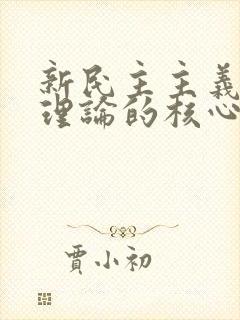 新民主主義
理論的核心
賈小初